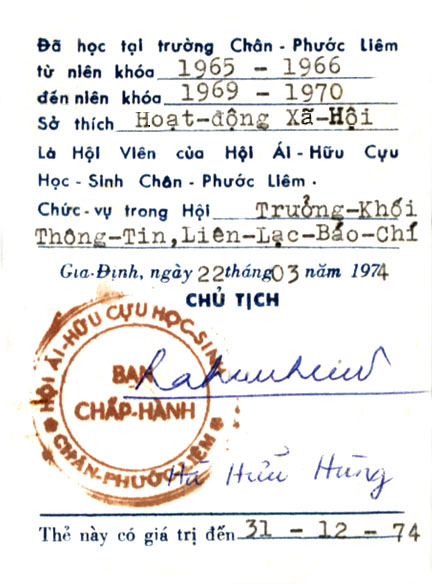 Đã học tại trường Chân - Phước Liêm
từ niên khóa 1965 - 1966
đến niên khóa 1969 - 1970
Sở thích Hoạt-động Xã-Hội
Là Hội Viên của Hội Ái-Hữu Cựu
Học-Sinh Chân-Phước Liêm.
Chức-vụ trong Hội Trưởng-Khối
Thông-Tin, Liên-Lạc-Báo-Chí
Gia-Định, ngày 22 tháng 03 năm 1974
CHỦ TỊCH
HỘI ÁI-HỮU CỰU HỌC-SINH
BAN
CHẤP-HÀNH
CHÂN-PHƯỚC-LIÊM
Hà Hửu Hùng
Thẻ này có giá trị đến 31 - 12 - 74